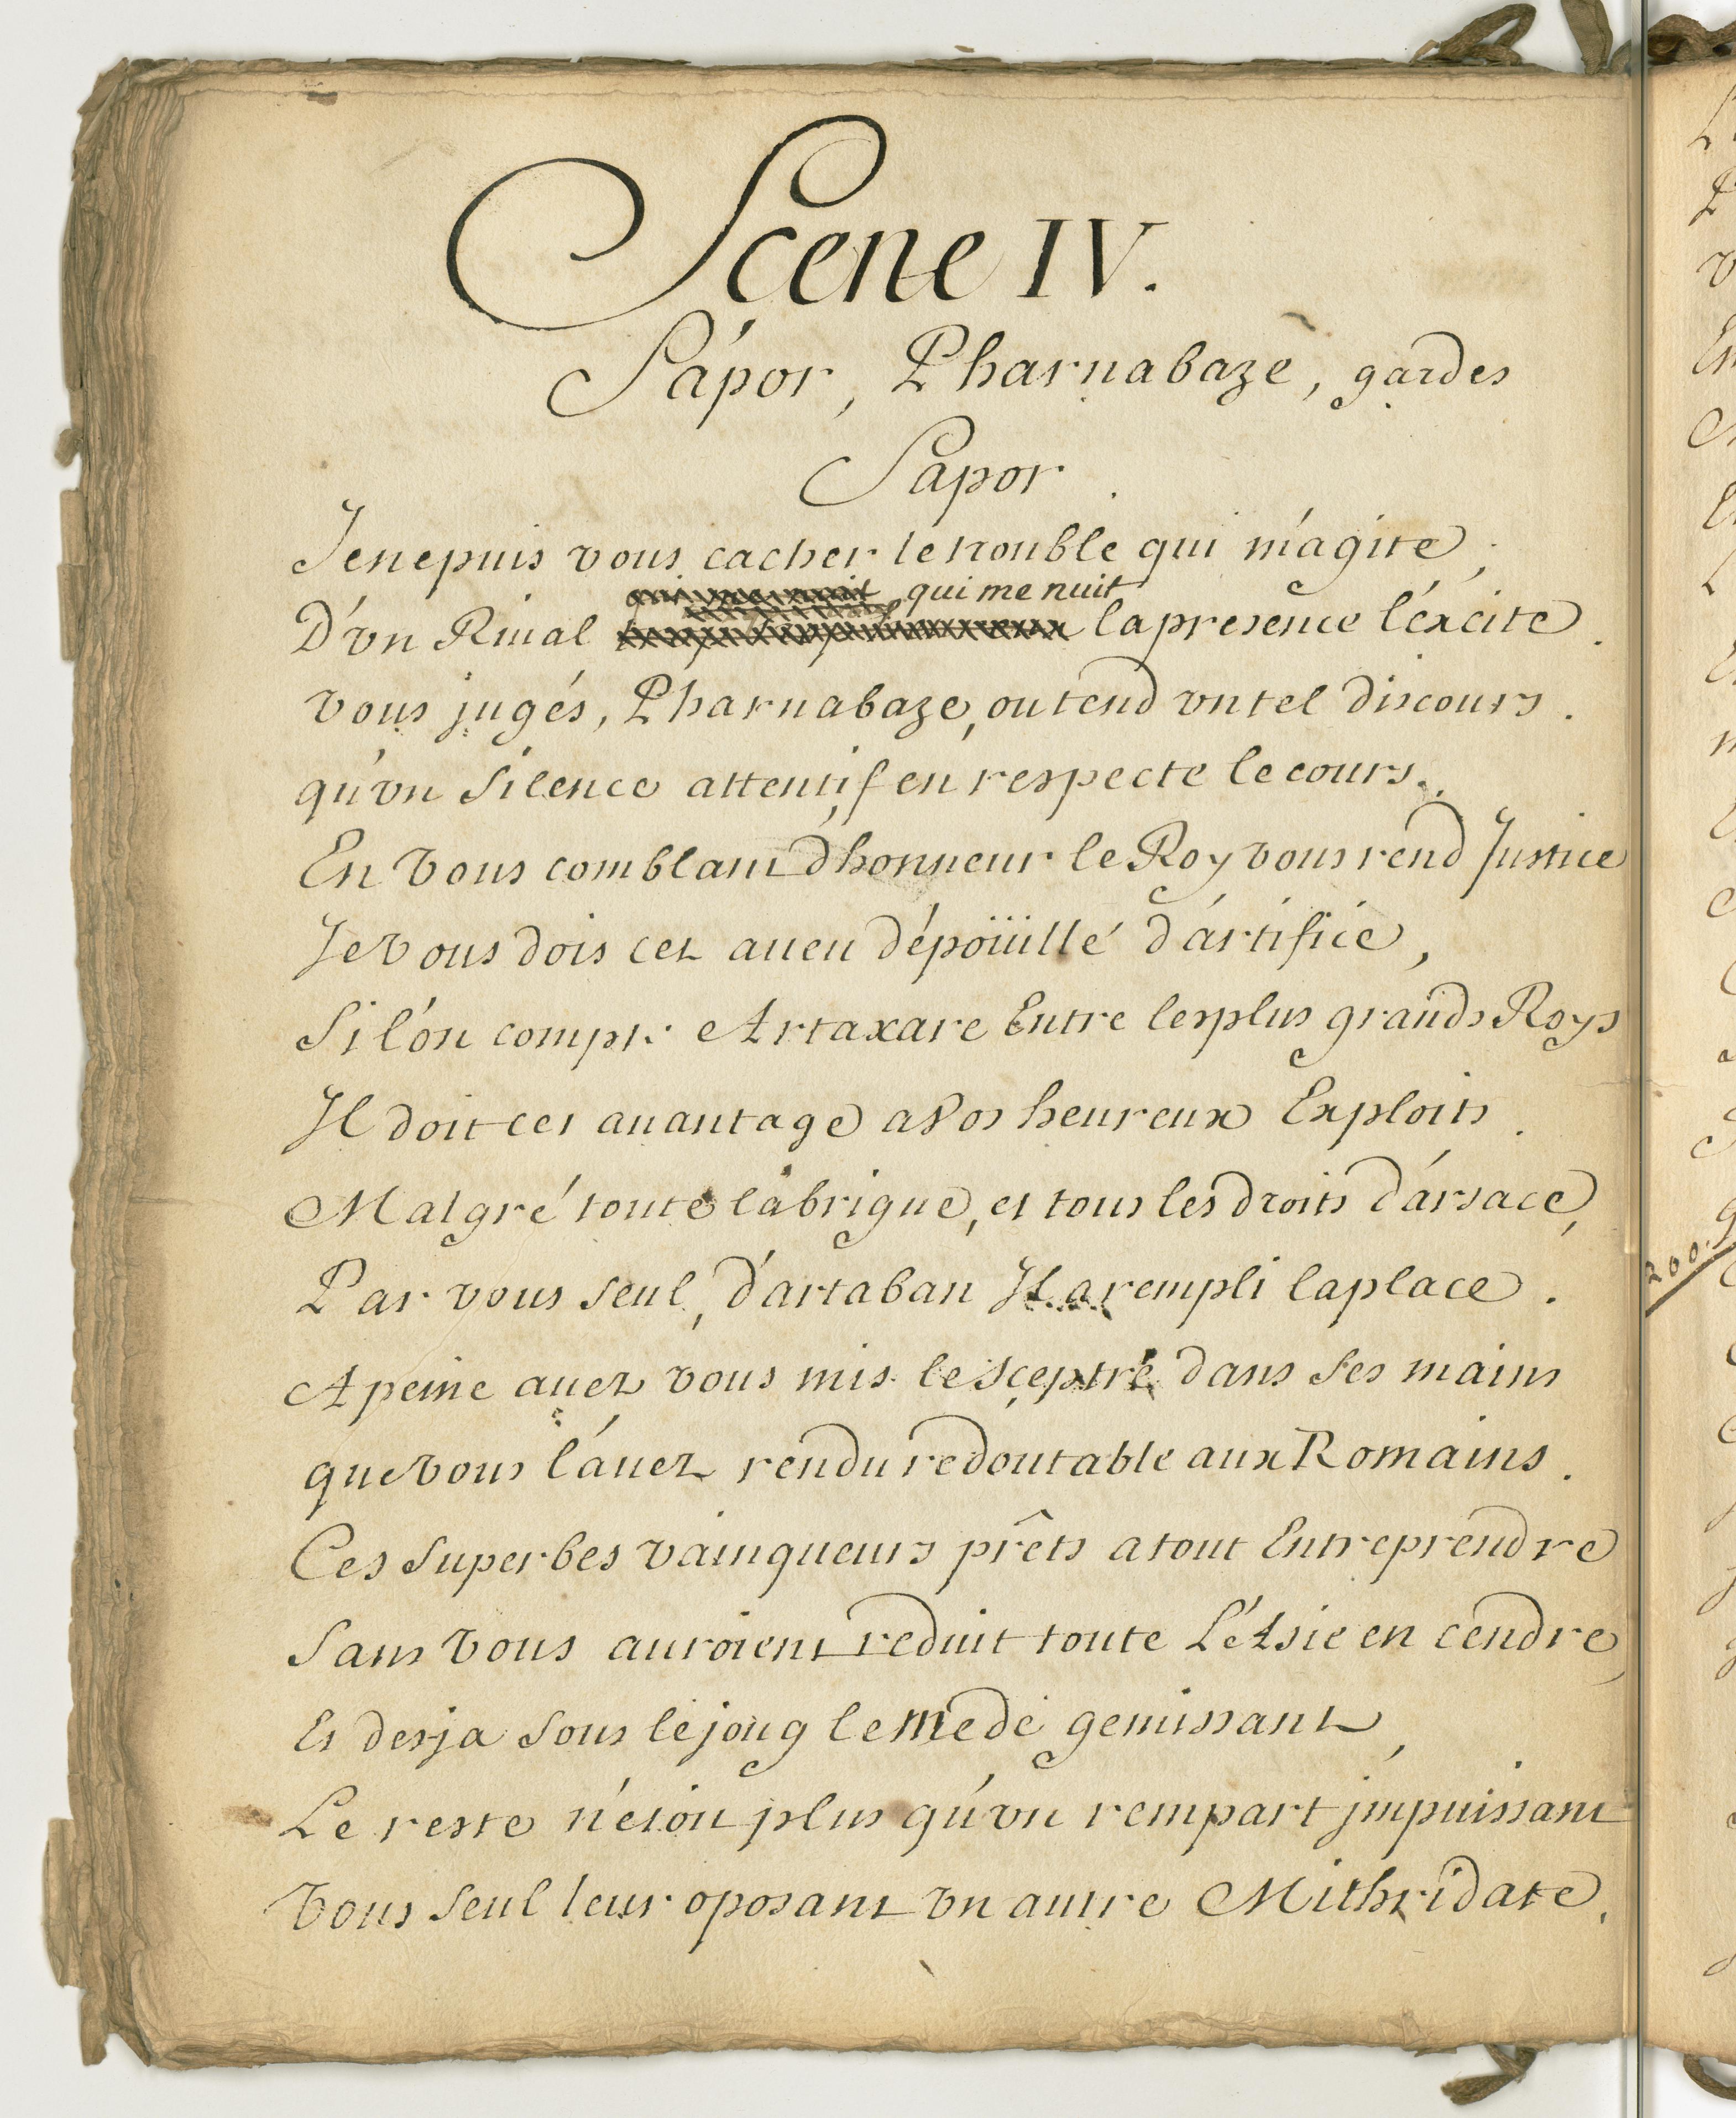 Scene IV.
Sapor, Pharnabaze, gardes
Sapor
Je ne puis vous cacher le trouble qui m'agite,
qui me nuit
D'vn Riual la presence l'éxcite.
vous jugés, Pharnabaze, ou tend vn tel discours.
qu'vn silence attentif en respecte le cours.
En vous comblant d'honneur le Roy vous rend Justice
Je vous dois cet aueu dépöüillé d'artifice,
Si l'on compte Artaxare Entre les plus grands Roys
Il doit cet auantage a vos heureux Exploits.
Malgré toute la brigue, et tous les droits d'arsace,
Par vous seul, d'artaban Il a rempli la place.
A peine auez vous mis le sceptre dans ses mains
que vous l'auez rendu redoutable aux Romains.
Ces superbes vainqueurs prêts a tout Entreprendre
Sans vous auroient reduit toute L'Asie en cendre,
Et desja sous le joug le mede gemissant,
Le reste n'etoit plus qu'vn rempart jmpuissant
Vous seul leur oposant vn autre Mithridate,
200.